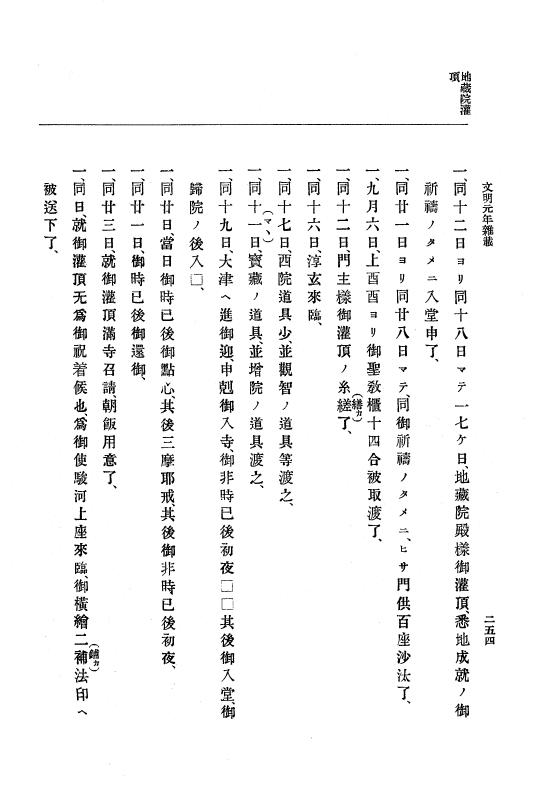 地藏院灌
頂
文明元年雜載
二五四
一、同十二日ヨリ同十八日マテ一七ケ日、地藏院殿樣御灌頂、悉地成就ノ御
祈禱ノタメニ入堂申了、
一、同廿一日ヨリ同廿八日マテ、同御祈禱ノタメニ、ヒサ門供百座沙汰了、
一、九月六日、上酉酉ヨリ御聖敎櫃十四合被取渡了、
一、同十二日、門主樣御灌頂ノ糸縒了、
(繕カ)
一、同十六日、淳玄來臨、
一、同十七日、西院道具少、並觀智ノ道具等渡之、
一、同十一日、寶藏ノ道具、並增院ノ道具渡之、
(マヽ)
一、同十九日、大津ヘ進御迎、申剋御入寺、御非時已後初夜□□其後御入堂、御
歸院ノ後入□、
一、同廿日、當日御時已後御點心、其後三摩耶戒、其後御非時已後初夜、
一、同廿一日、御時已後御還御、
一、同廿三日、就御灌頂滿寺召請、朝飯用意了、
一、同日、就御灌頂无爲御祝着候也、爲御使駿河上座來臨、御橫繪二補法印ヘ
(鋪カ)
被送下了、